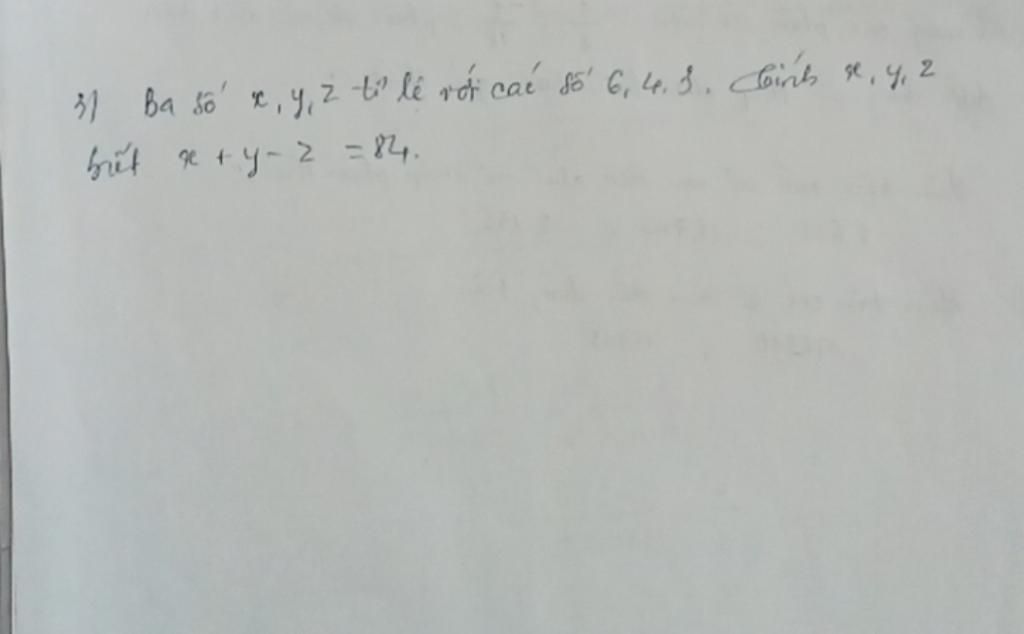 3) Ba số x, y, z tỉ lệ với các số 6, 4, 3. Tính x, y, z
biết x + y - z = 84.